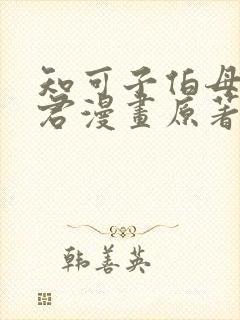 知可子伯母
君漫畫原著
韩善英